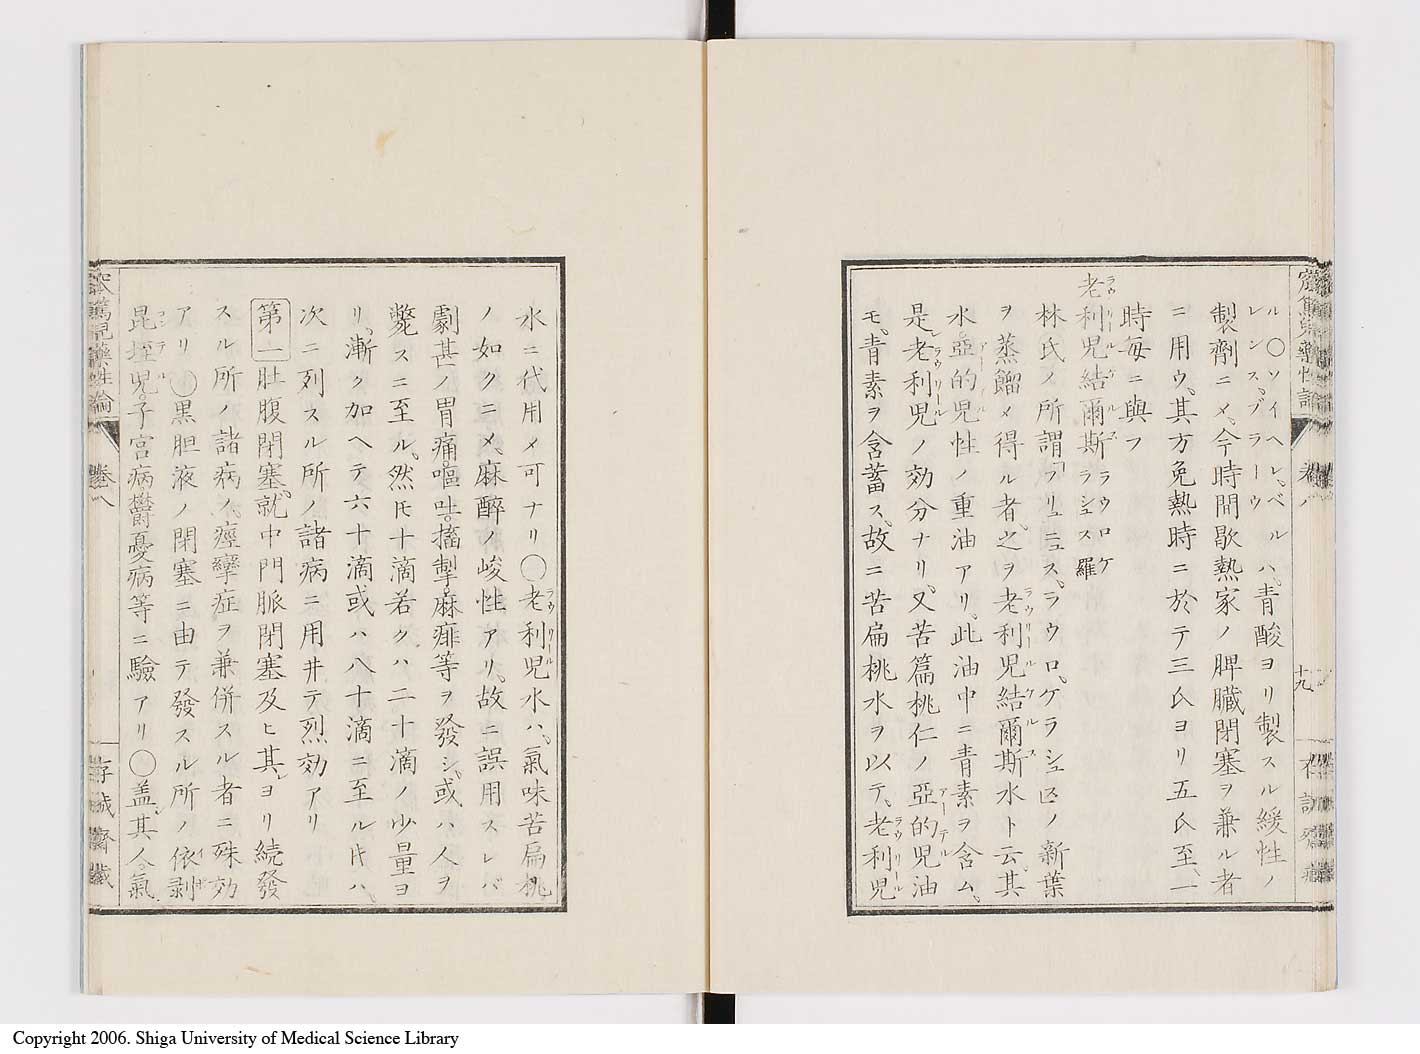 ル〇ソイヘレ、ベルハ、青酸ヨリ製スル緩性ノ
レンス、ブラーウ
製劑ニメ、今時間歇熱家ノ脾臓閉塞ヲ兼ル者
ニ用ウ、其方免熱時ニ於テ三氏ヨリ五氏至、一
時毎ニ與フ
老利児結爾斯ラウロケ
ラシュス羅
林氏ノ所謂「フリュニュス、ラウロ、ケラシュスノ新葉
ヲ蒸餾メ得ル者、之ヲ老利児結爾斯水ト云、其
水亞的児性ノ重油アリ、此油中ニ青素ヲ含ム、
是、老利児ノ効分ナリ、又苦篇桃仁ノ亞的児油
モ、青素ヲ含蓄ス、故ニ苦扁桃水ヲ以テ、老利児
十九
水ニ代用メ可ナリ〇老利児水ハ、氣味苦扁桃
ノ如クニメ、麻醉ノ峻性アリ、故ニ誤用スレバ
劇甚ノ胃痛嘔吐搐掣麻痱等ヲ發シ、或ハ人ヲ
斃スニ至ル、然𪜈十滴若クハ二十滴ノ少量ヨ
リ、漸ク加ヘテ六十滴或ハ八十滴ニ至ル𬼀ハ、
次ニ列スル所ノ諸病ニ用井テ烈効アリ
第一肚腹閉塞、就中門脈閉塞及ヒ其ヨリ続發
スル所ノ諸病ノ、痙攣症ヲ兼併スル者ニ殊効
アリ〇黒胆液ノ閉塞ニ由テ發スル所ノ依剥
昆垤児、子宮病欝憂病等ニ驗アリ〇盖、其ノ含氣
窊篤児藥性論
巻八
存誠齋蔵
Copyright 2006. Shiga University of Medical Science Library